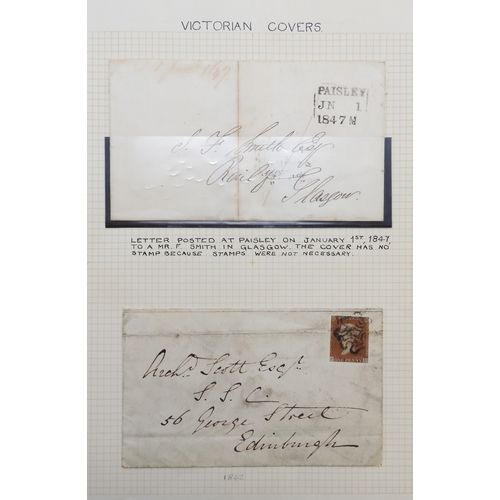 VICTORIAN COVERS.
PAISLEY
JN 1
1847 M
Smith Esq
Glasgow.
LETTER POSTED AT PAISLEY ON JANUARY 1ST, 1847,
TO A MR. F. SMITH IN GLASGOW. THE COVER HAS NO
STAMP BECAUSE STAMPS WERE NOT NECESSARY.
Archd. Scott Esqr.
S. S. C.
56 George Street
Edinburgh